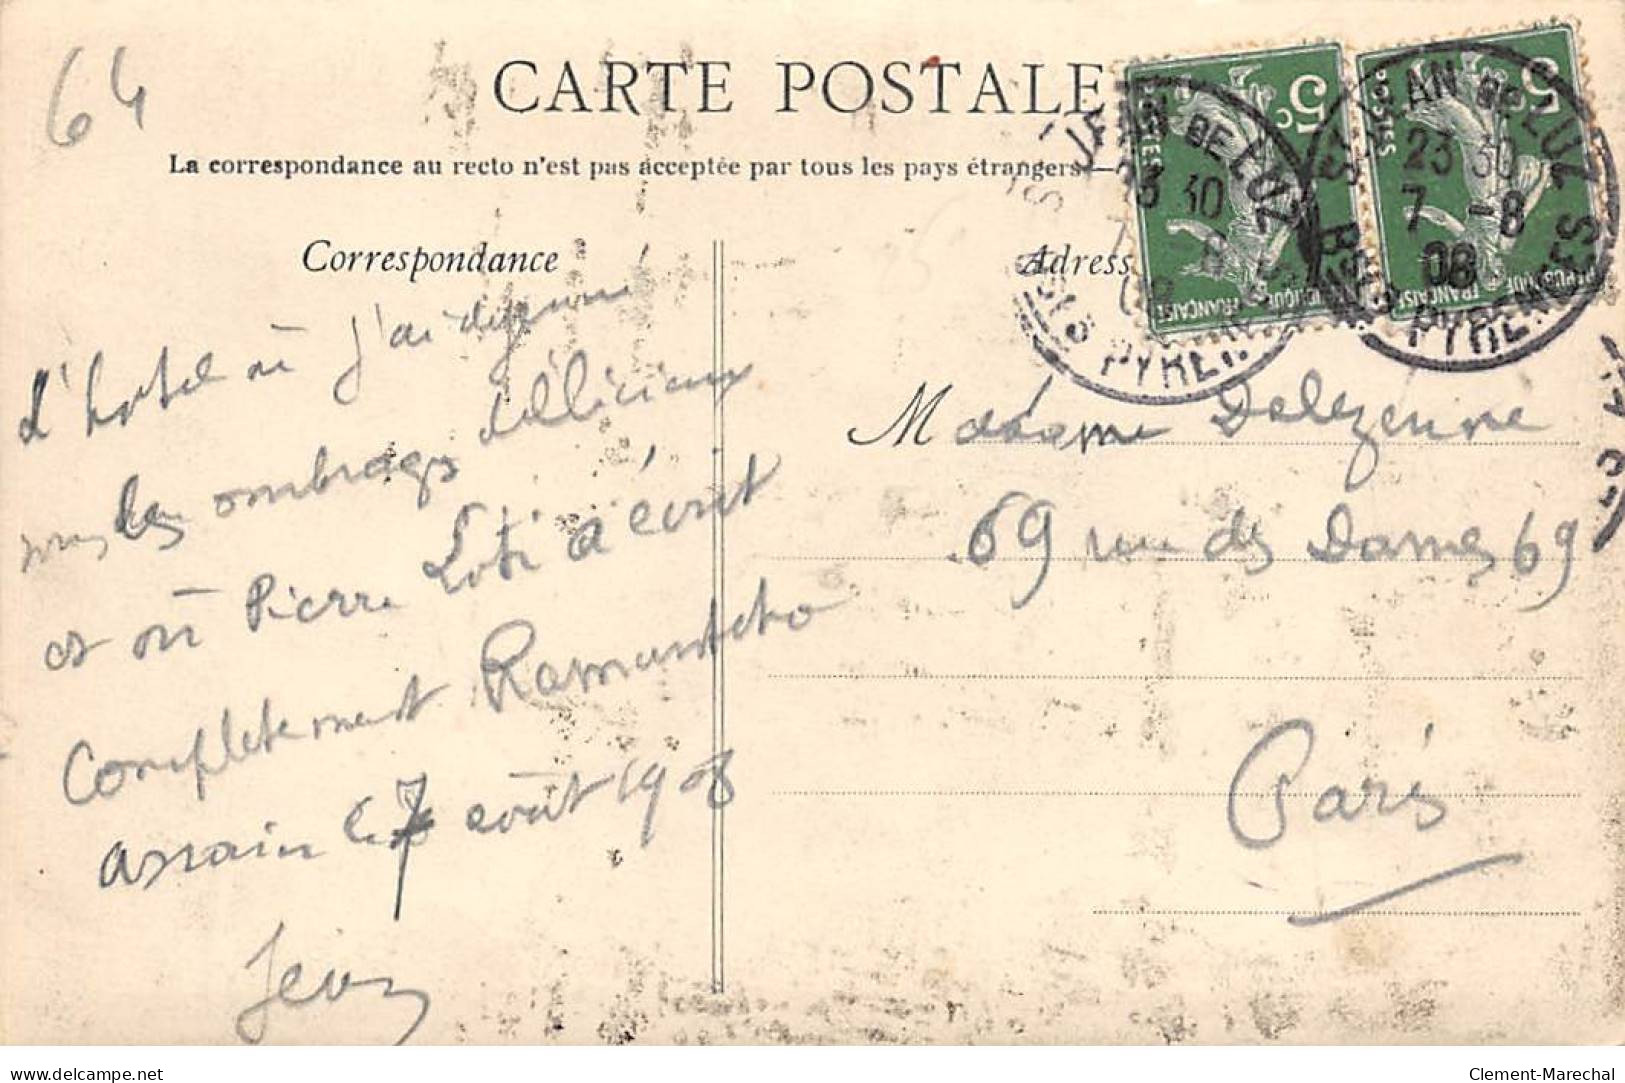 64
CARTE POSTALE
La correspondance au recto n'est pas acceptée par tous les pays étrangers
Correspondance
Adress
L'hotel où j'ai déjeuné
sous les ombrages délicieux
et où Pierre Loti a écrit
completement Ramuntcho
Ascain le 7 août 1908
Jean
Madame Delezenne
69 rue des Dames 69
Paris
5c
POSTES
RÉPUBLIQUE FRANÇAISE
5c
POSTES
RÉPUBLIQUE FRANÇAISE
ST JEAN DE LUZ
23 30
8
PYREN
ST JEAN DE LUZ
23 30
7 -8
08
BSES PYRENEES
delcampe.net
Clement-Marechal